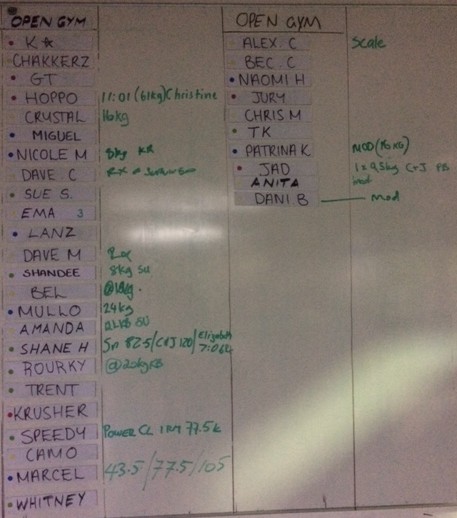 OPEN GYM
K ☆
CHAKKERZ
GT
HOPPO 11:01 (61kg) Christine
CRYSTAL 16kg
MIGUEL
NICOLE M 8kg KB
DAVE C RX
SUE S.
EMA J
LANZ
DAVE M Rx
SHANDEE 8kg SU
BEL
MULLO 24kg
AMANDA SU
SHANE H Sn 82.5/C+J 120/Elizabeth 7:06
ROURKY @20kg KB
TRENT
KRUSHER
SPEEDY POWER CL 1RM 77.5k
CAMO
MARCEL 43.5/77.5/105
WHITNEY
OPEN GYM
ALEX. C Scale
BEC. C
NAOMI H
JURY
CHRIS M
TK
PATRINA K MOD (16KG)
JAD C+J PB
ANITA
DANI B — mod